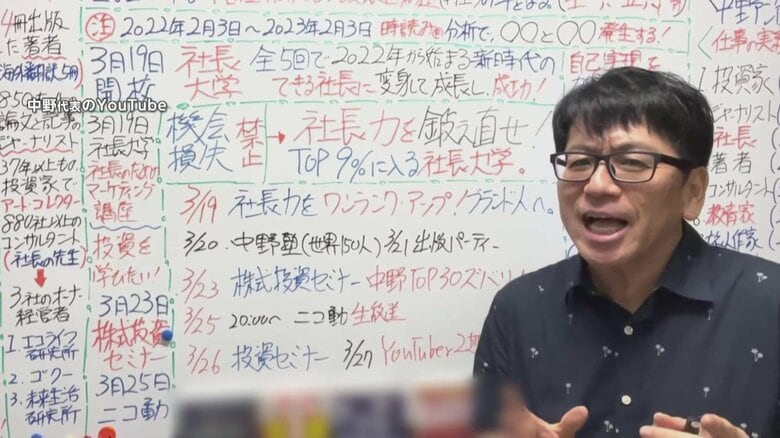 4冊出版
した著者
海外翻訳5冊
850
論文と記事の
ジャーナリスト
37年以上も
投資家で
アートコレクター
880社以上の
コンサルタント
(社長の先生)
3社のオーナー
経営者
1. エコライフ
研究所
2. ゴクー
3. 未来生活
研究所
中野代表のYouTube
注 2022年2月3日〜2023年2月3日 時読み 分析で、○○と○○発生する!
3月19日
開校
3月19日
社長大学
社長のための
マーケティング
講座
投資を
学びたい!
3月23日
株式投資
セミナー
3月25日
ニコ動
社長
大学
全5回で、2022年から始まる新時代の
できる社長に変身して成長し、成功!
機会
損失
禁止
→ 社長力を鍛え直せ!
TOP 9%に入る社長大学。
3/19 社長力をワンランク・アップ!ブランド人へ。
3/20 中野塾(世界150人) 3/21 出版パーティー
3/23 株式投資セミナー中野TOP30ズバリ
3/25 20:00〜 ニコ動 生放送
3/26 投資セミナー 3/27 YouTuber2
中野
仕事の実
自己実現
1. 投資家
ジャーナリスト
社長
著者
コンサルタント
教育家